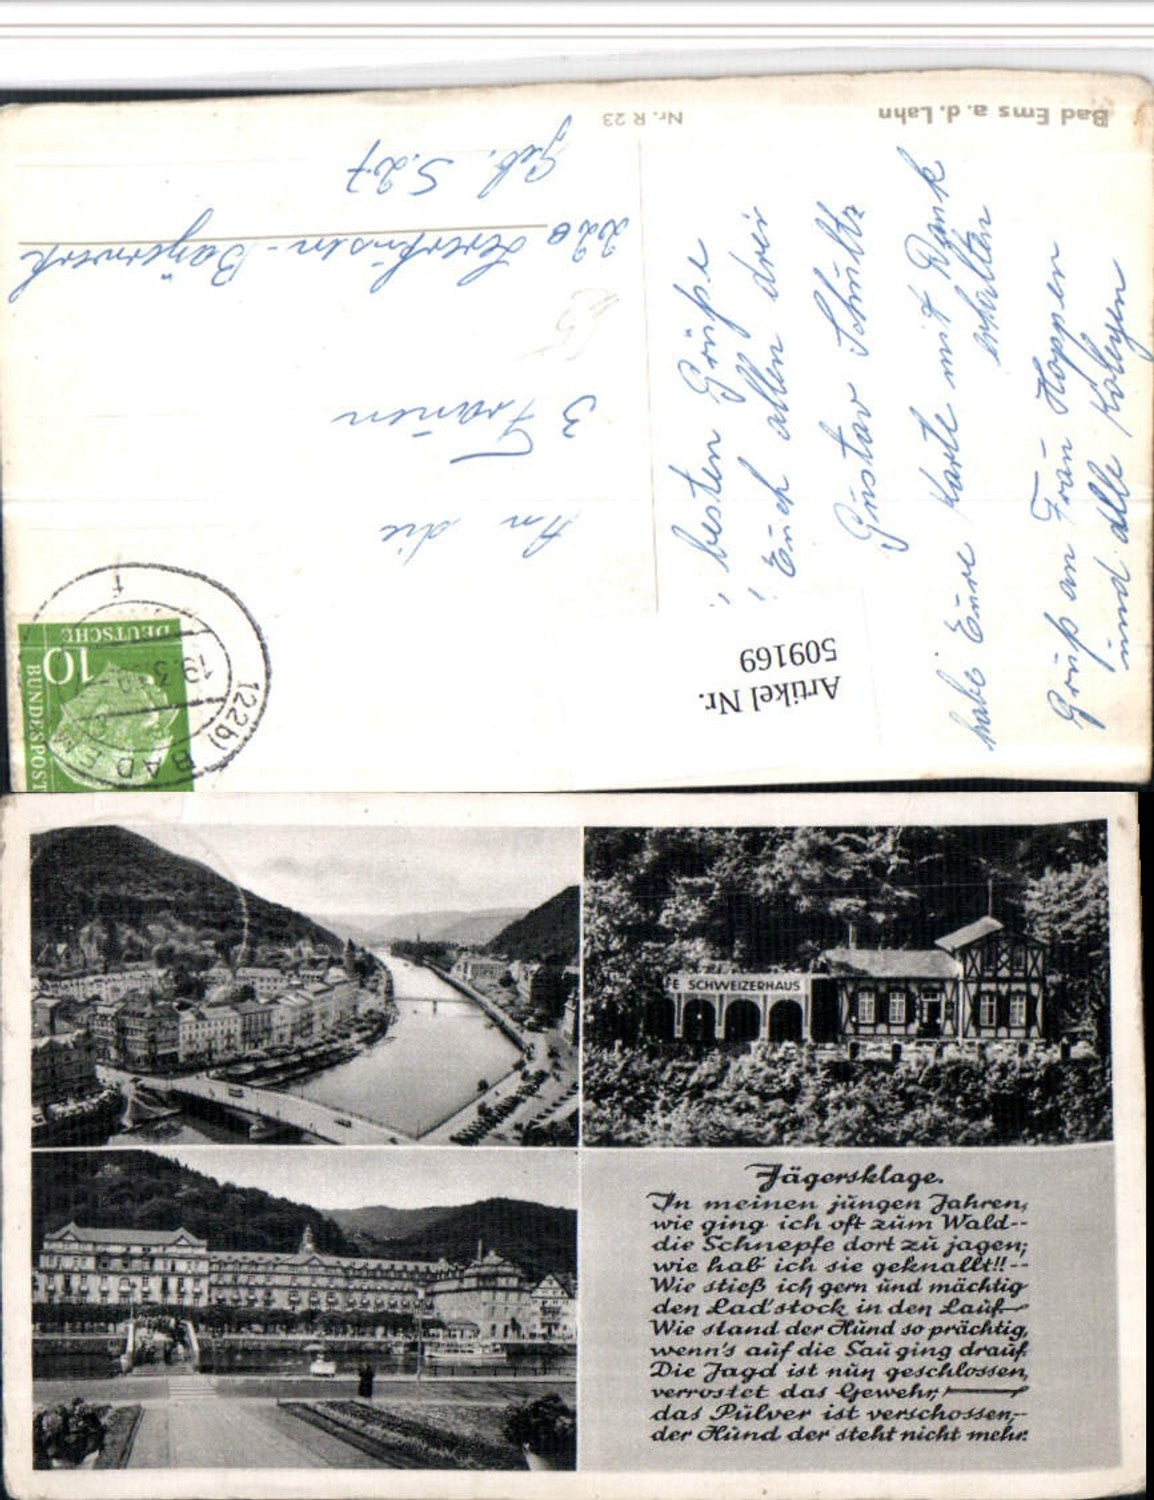 Bad Ems a. d. Lahn
Nr. R 23
besten Grüße
Euch allen drei
Gustav Schultz
habe Eure Karte mit Dank
erhalten
Gruß an Frau Hoppen
und alle Kolegen
An die
3 Frauen
220 Leverkusen-Bayerwerk
Geb. S. 27
Artikel Nr.
509169
10
DEUTSCHE
BUNDESPOST
(22b) BAD EM
19.3.
f
FE SCHWEIZERHAUS
Jägersklage.
In meinen jungen Jahren,
wie ging ich oft zum Wald--
die Schnepfe dort zu jagen;
wie hab' ich sie geknallt!!--
Wie stieß ich gern und mächtig
den Lad'stock in den Lauf—
Wie stand der Hund so prächtig,
wenn's auf die Sau ging drauf.
Die Jagd ist nun geschlossen,
verrostet das Gewehr,—
das Pulver ist verschossen,--
der Hund der steht nicht mehr.